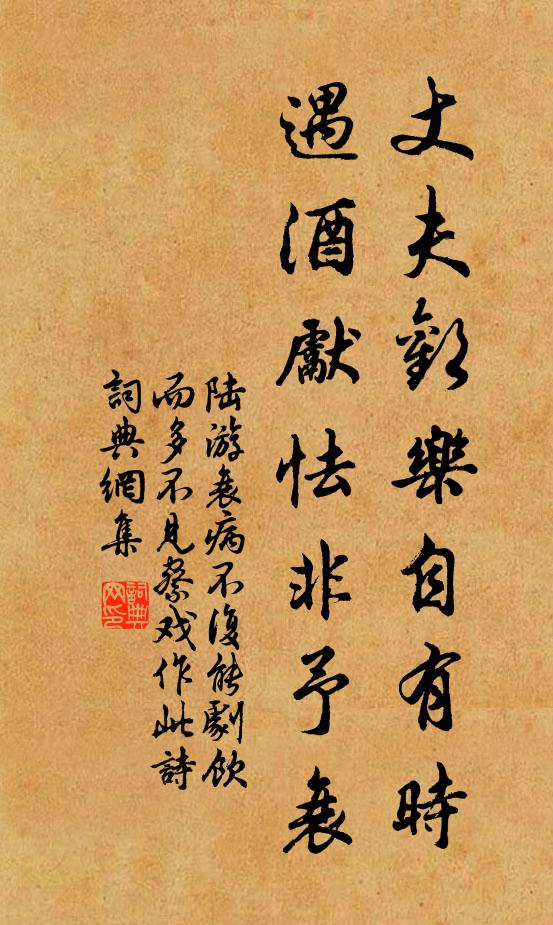 丈夫歡樂自有時
遇酒獻怯非予衰
陆游衰病不復能劇飲
而多不見察戏作此詩
詞典網集
詞典網印